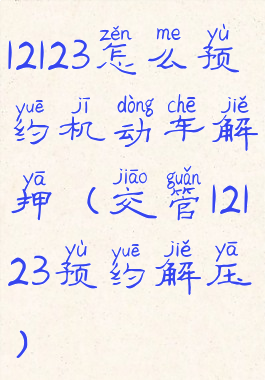 zěn me yù
12123怎么预
yuē jī dòng chē jiě
约机动车解
yā jiāo guǎn
押（交管121
yù yuē jiě yā
23预约解压
）